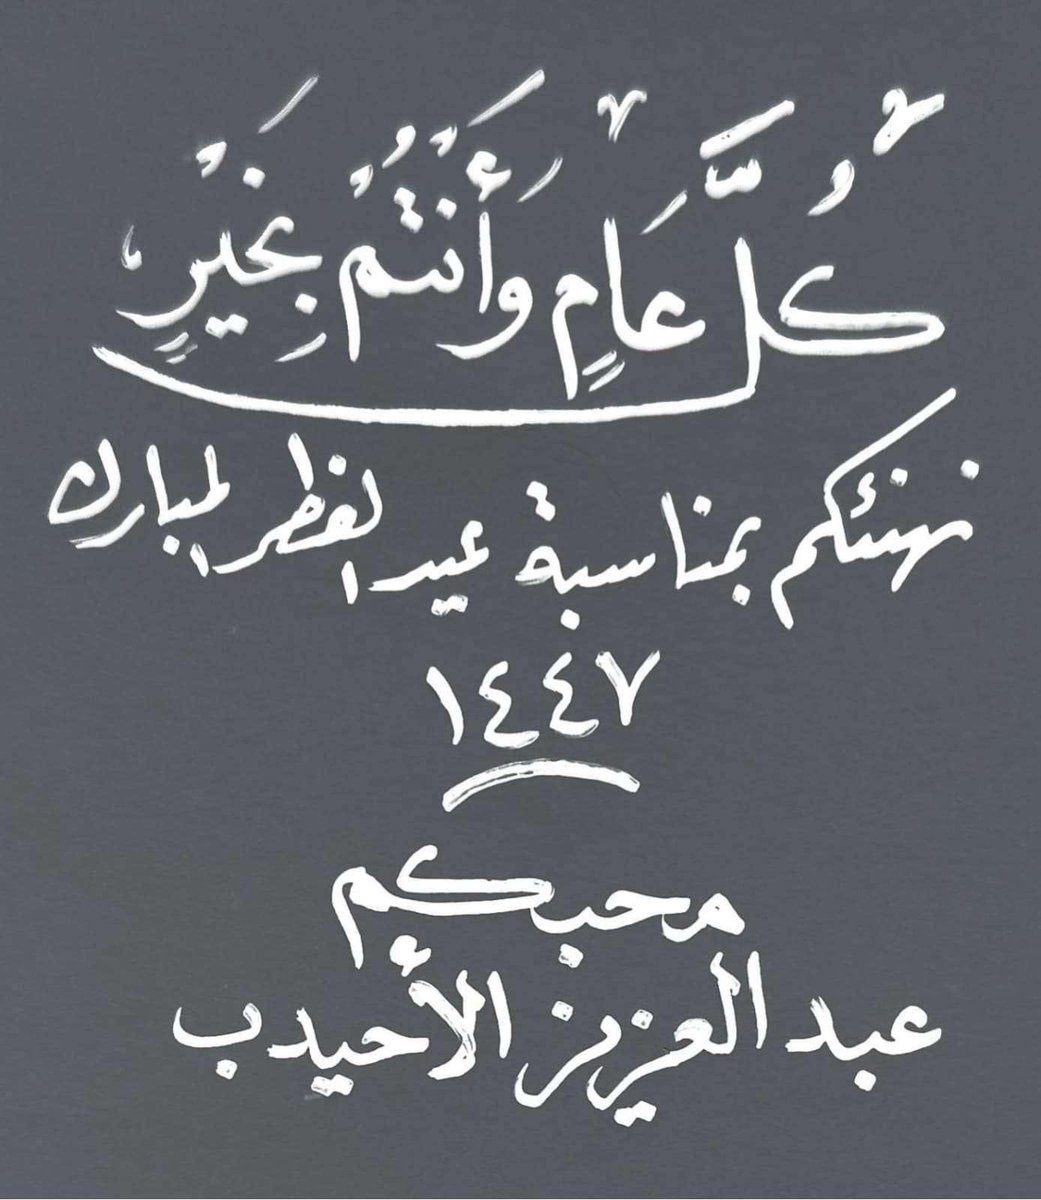 كُلَّ عَامٍ وَأَنْتُمْ بِخَيْرٍ،
نهنئكم بمناسبة عيد الفطر المبارك
١٤٤٧
محبكم
عبد العزيز الأحيدب